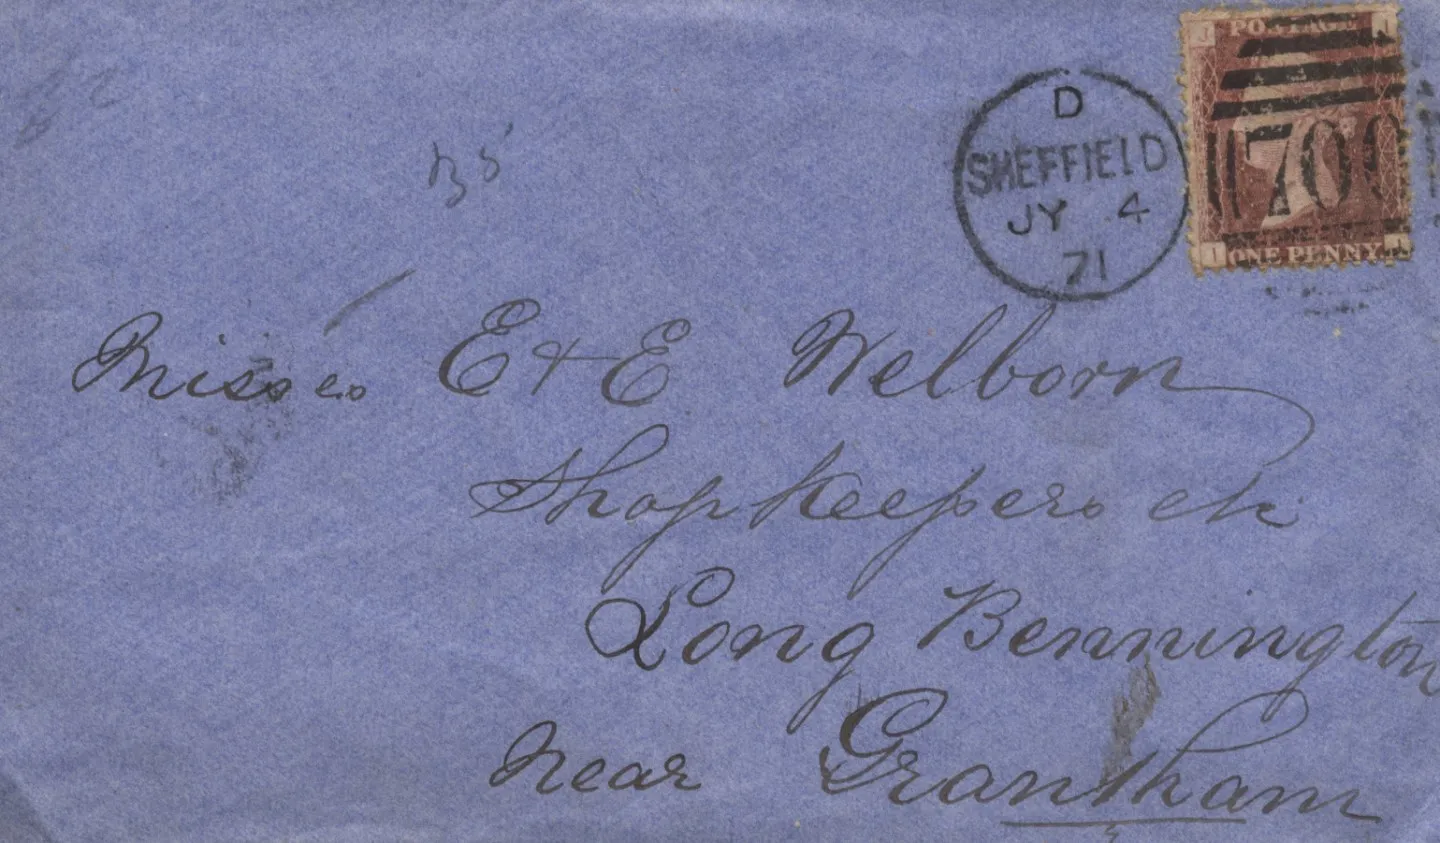 J POSTAGE I
700
I ONE PENNY J
D
SHEFFIELD
JY 4
71
Misses E & E Welborn
Shopkeepers etc
Long Bennington
Near Grantham